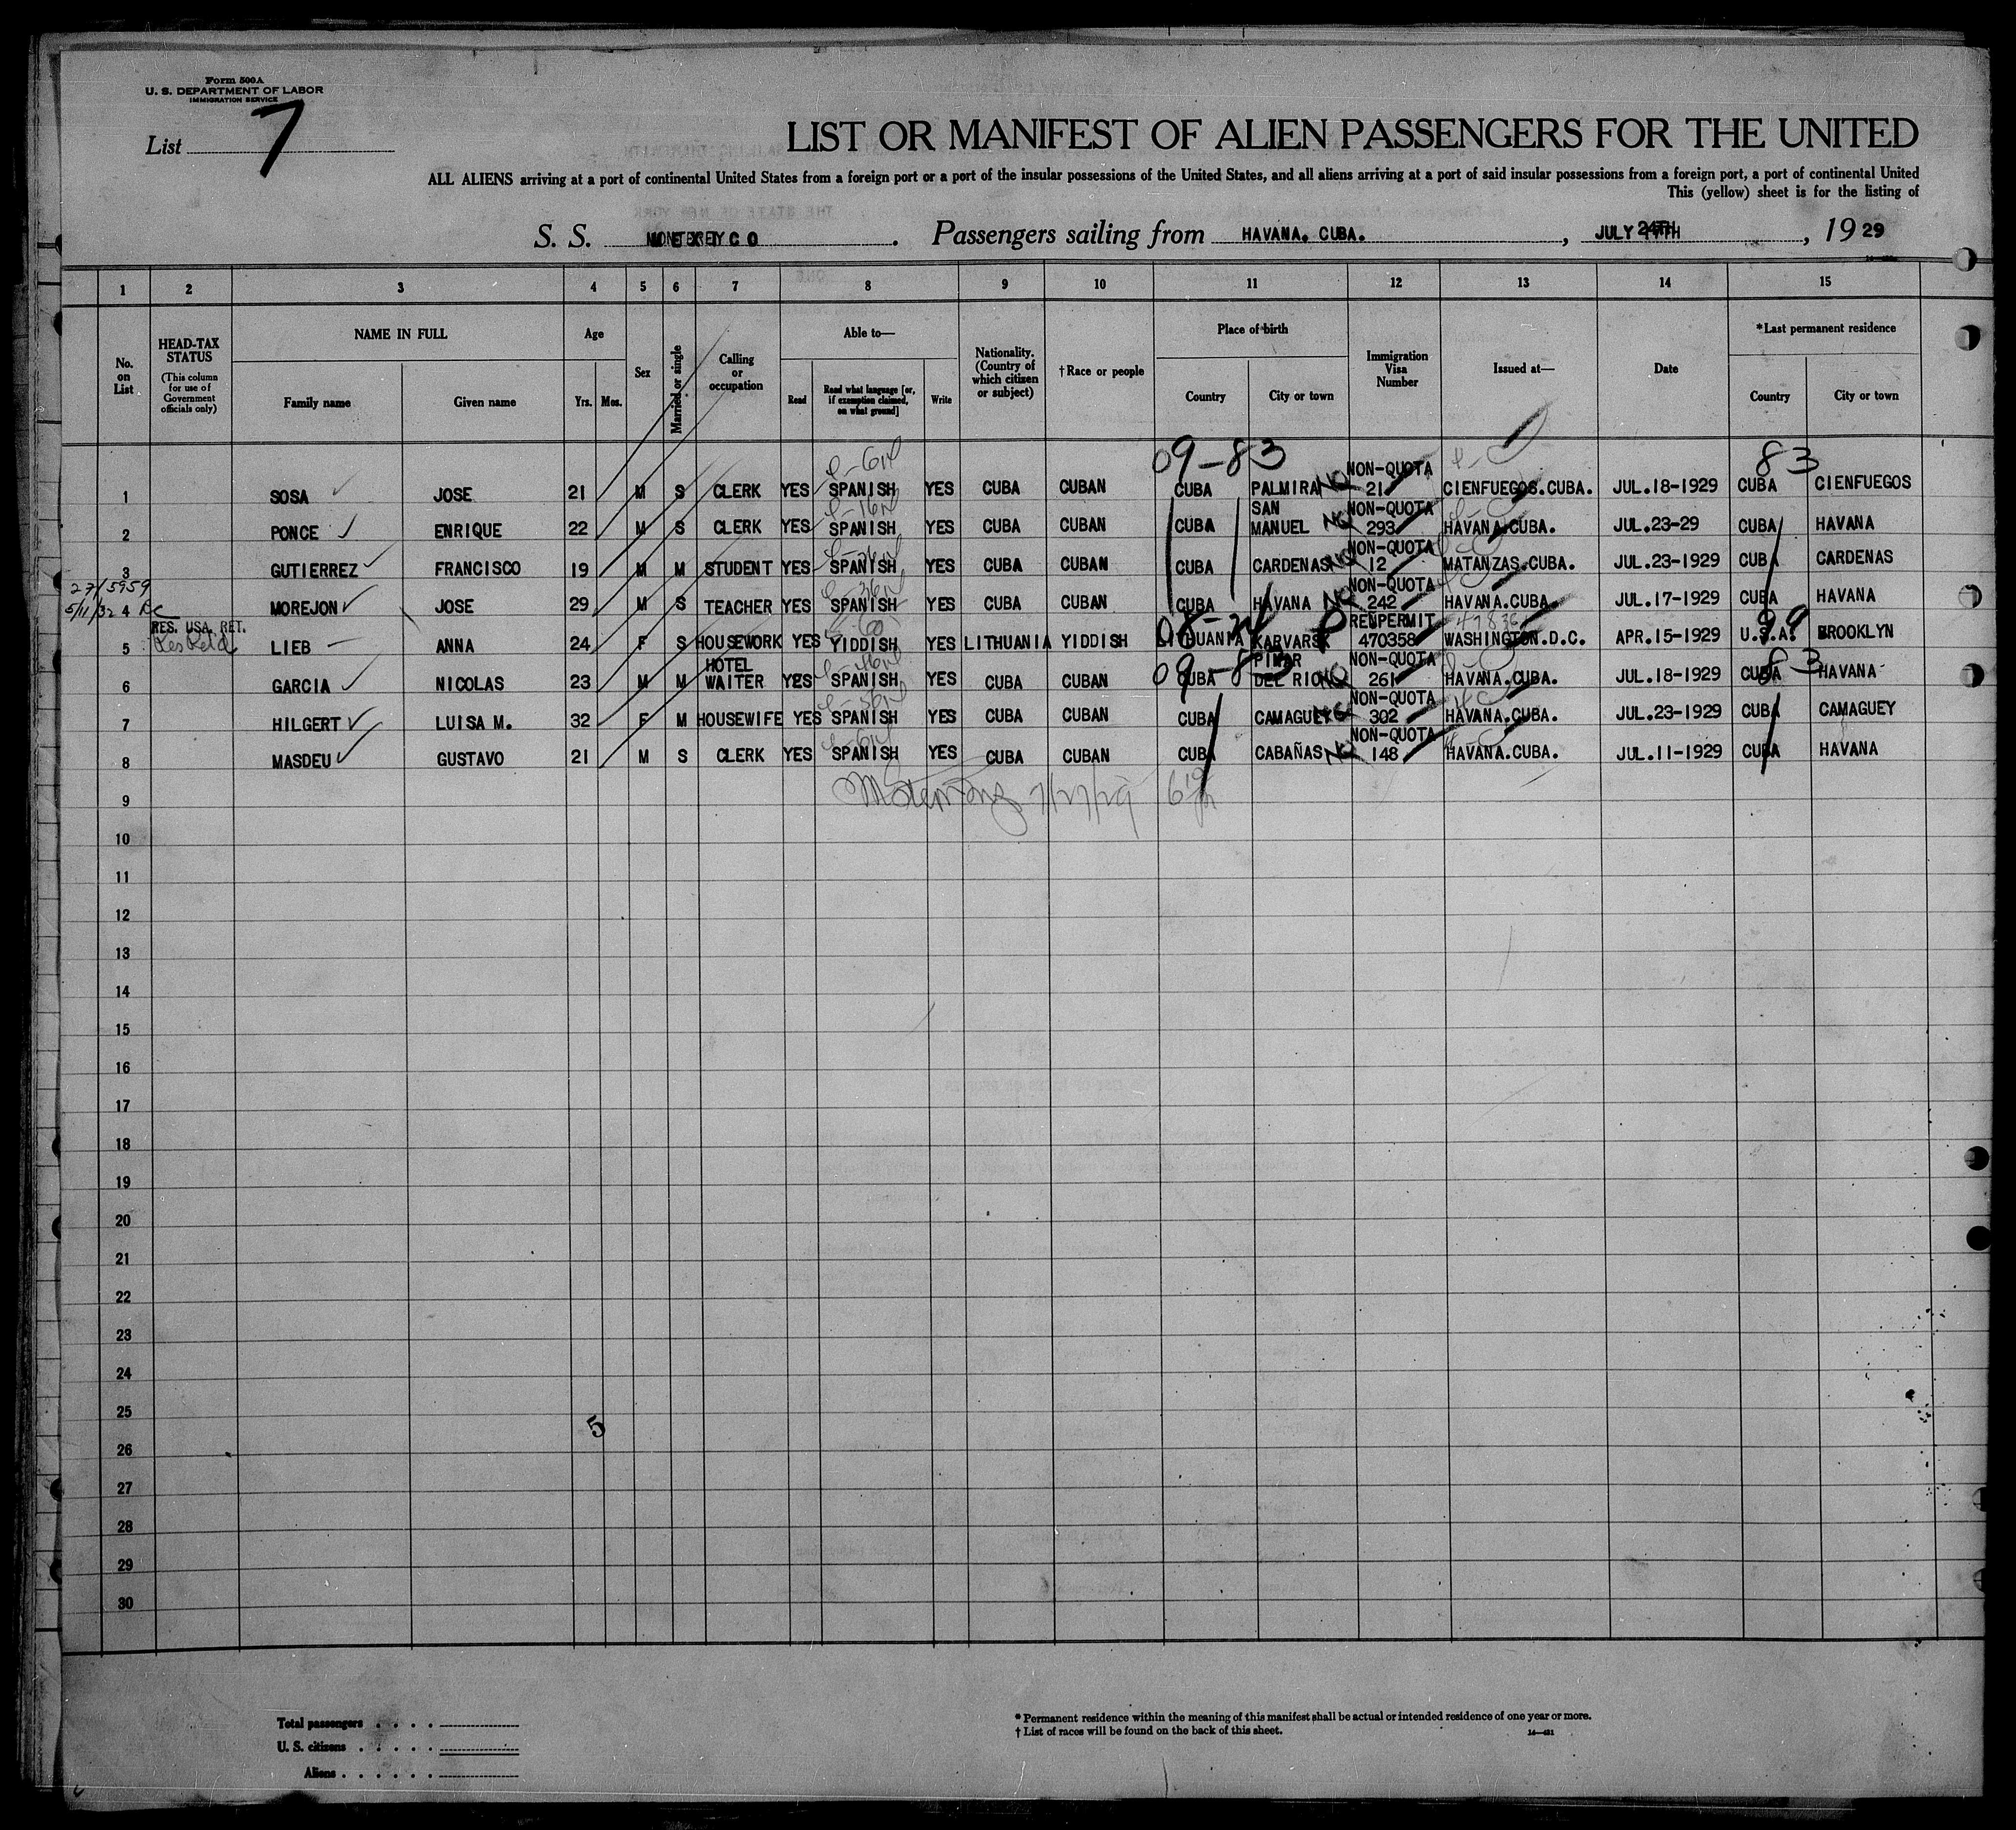 Form 500A
U. S. DEPARTMENT OF LABOR
IMMIGRATION SERVICE
List 7
LIST OR MANIFEST OF ALIEN PASSENGERS FOR THE UNITED
ALL ALIENS arriving at a port of continental United States from a foreign port or a port of the insular possessions of the United States, and all aliens arriving at a port of said insular possessions from a foreign port, a port of continental United
This (yellow) sheet is for the listing of
S. S. MEXICO. Passengers sailing from HAVANA. CUBA., JULY 24TH, 1929
1 2 3 4 5 6 7 8 9 10 11 12 13 14 15
No. on List
HEAD-TAX STATUS (This column for use of Government officials only)
NAME IN FULL
Family name Given name
Age
Yrs. Mos.
Sex
Married or single
Calling or occupation
Able to—
Read Read what language [or, if exemption claimed, on what ground] Write
Nationality. (Country of which citizen or subject)
†Race or people
Place of birth
Country City or town
Immigration Visa Number
Issued at—
Date
*Last permanent residence
Country City or town
09-83 83
1 SOSA JOSE 21 M S CLERK YES SPANISH YES CUBA CUBAN CUBA PALMIRA NO NON-QUOTA 21 CIENFUEGOS.CUBA. JUL.18-1929 CUBA CIENFUEGOS
2 PONCE ENRIQUE 22 M S CLERK YES SPANISH YES CUBA CUBAN CUBA SAN MANUEL NO NON-QUOTA 293 HAVANA.CUBA. JUL.23-29 CUBA HAVANA
3 GUTIERREZ FRANCISCO 19 M M STUDENT YES SPANISH YES CUBA CUBAN CUBA CARDENAS NO NON-QUOTA 12 MATANZAS.CUBA. JUL.23-1929 CUBA CARDENAS
5/11/32 4 MOREJON JOSE 29 M S TEACHER YES SPANISH YES CUBA CUBAN CUBA HAVANA NO NON-QUOTA 242 HAVANA.CUBA. JUL.17-1929 CUBA HAVANA
RES. USA. RET.
5 LIEB ANNA 24 F S HOUSEWORK YES YIDDISH YES LITHUANIA YIDDISH LITHUANIA KARVARSK P REUPERMIT 470358 WASHINGTON.D.C. APR.15-1929 U.S.A. BROOKLYN
99
09-83 83
6 GARCIA NICOLAS 23 M M HOTEL WAITER YES SPANISH YES CUBA CUBAN CUBA PINAR DEL RIO NO NON-QUOTA 261 HAVANA.CUBA. JUL.18-1929 CUBA HAVANA
7 HILGERT LUISA M. 32 F M HOUSEWIFE YES SPANISH YES CUBA CUBAN CUBA CAMAGUEY NO NON-QUOTA 302 HAVANA.CUBA. JUL.23-1929 CUBA CAMAGUEY
8 MASDEU GUSTAVO 21 M S CLERK YES SPANISH YES CUBA CUBAN CUBA CABAÑAS NO NON-QUOTA 148 HAVANA.CUBA. JUL.11-1929 CUBA HAVANA
7/27/29
9
10
11
12
13
14
15
16
17
18
19
20
21
22
23
24
25
5
26
27
28
29
30
Total passengers
U. S. citizens
Aliens
* Permanent residence within the meaning of this manifest shall be actual or intended residence of one year or more.
† List of races will be found on the back of this sheet.